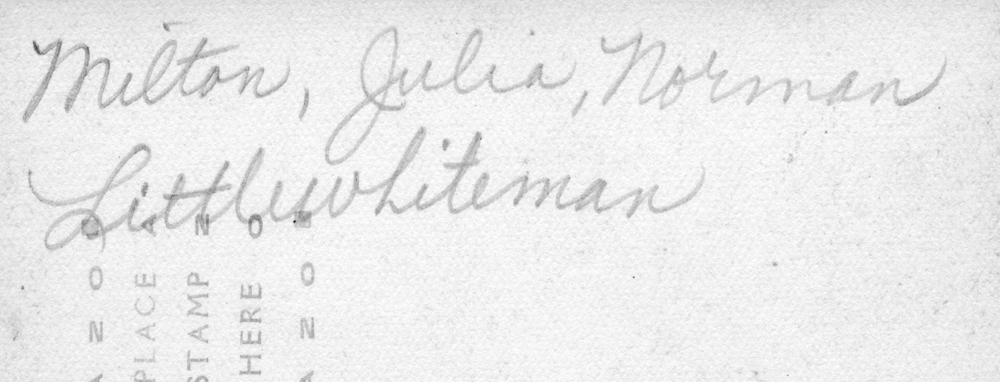 Milton, Julia, Norman
Littlewhiteman
PLACE
STAMP
HERE